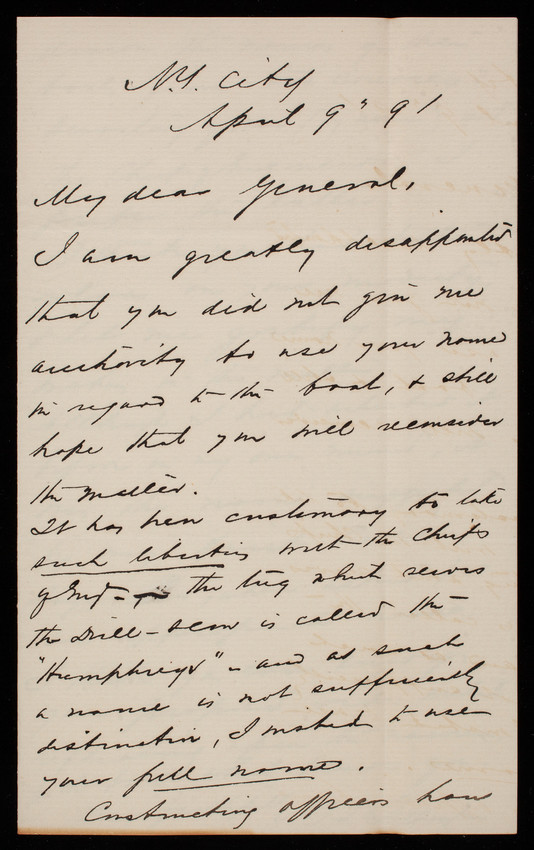 N.Y. City
April 9" 91
My dear General,
I am greatly disappointed
that you did not give me
authority to use your name
in regard to the boat, & still
hope that you will reconsider
the matter.
It has been customary to take
such liberties with the Chiefs
of Eng - the tug which serves
the Drill-scow is called the
"Humphreys" - and as such
a name is not sufficiently
distinctive, I wished to use
your full name.
Constructing officers have